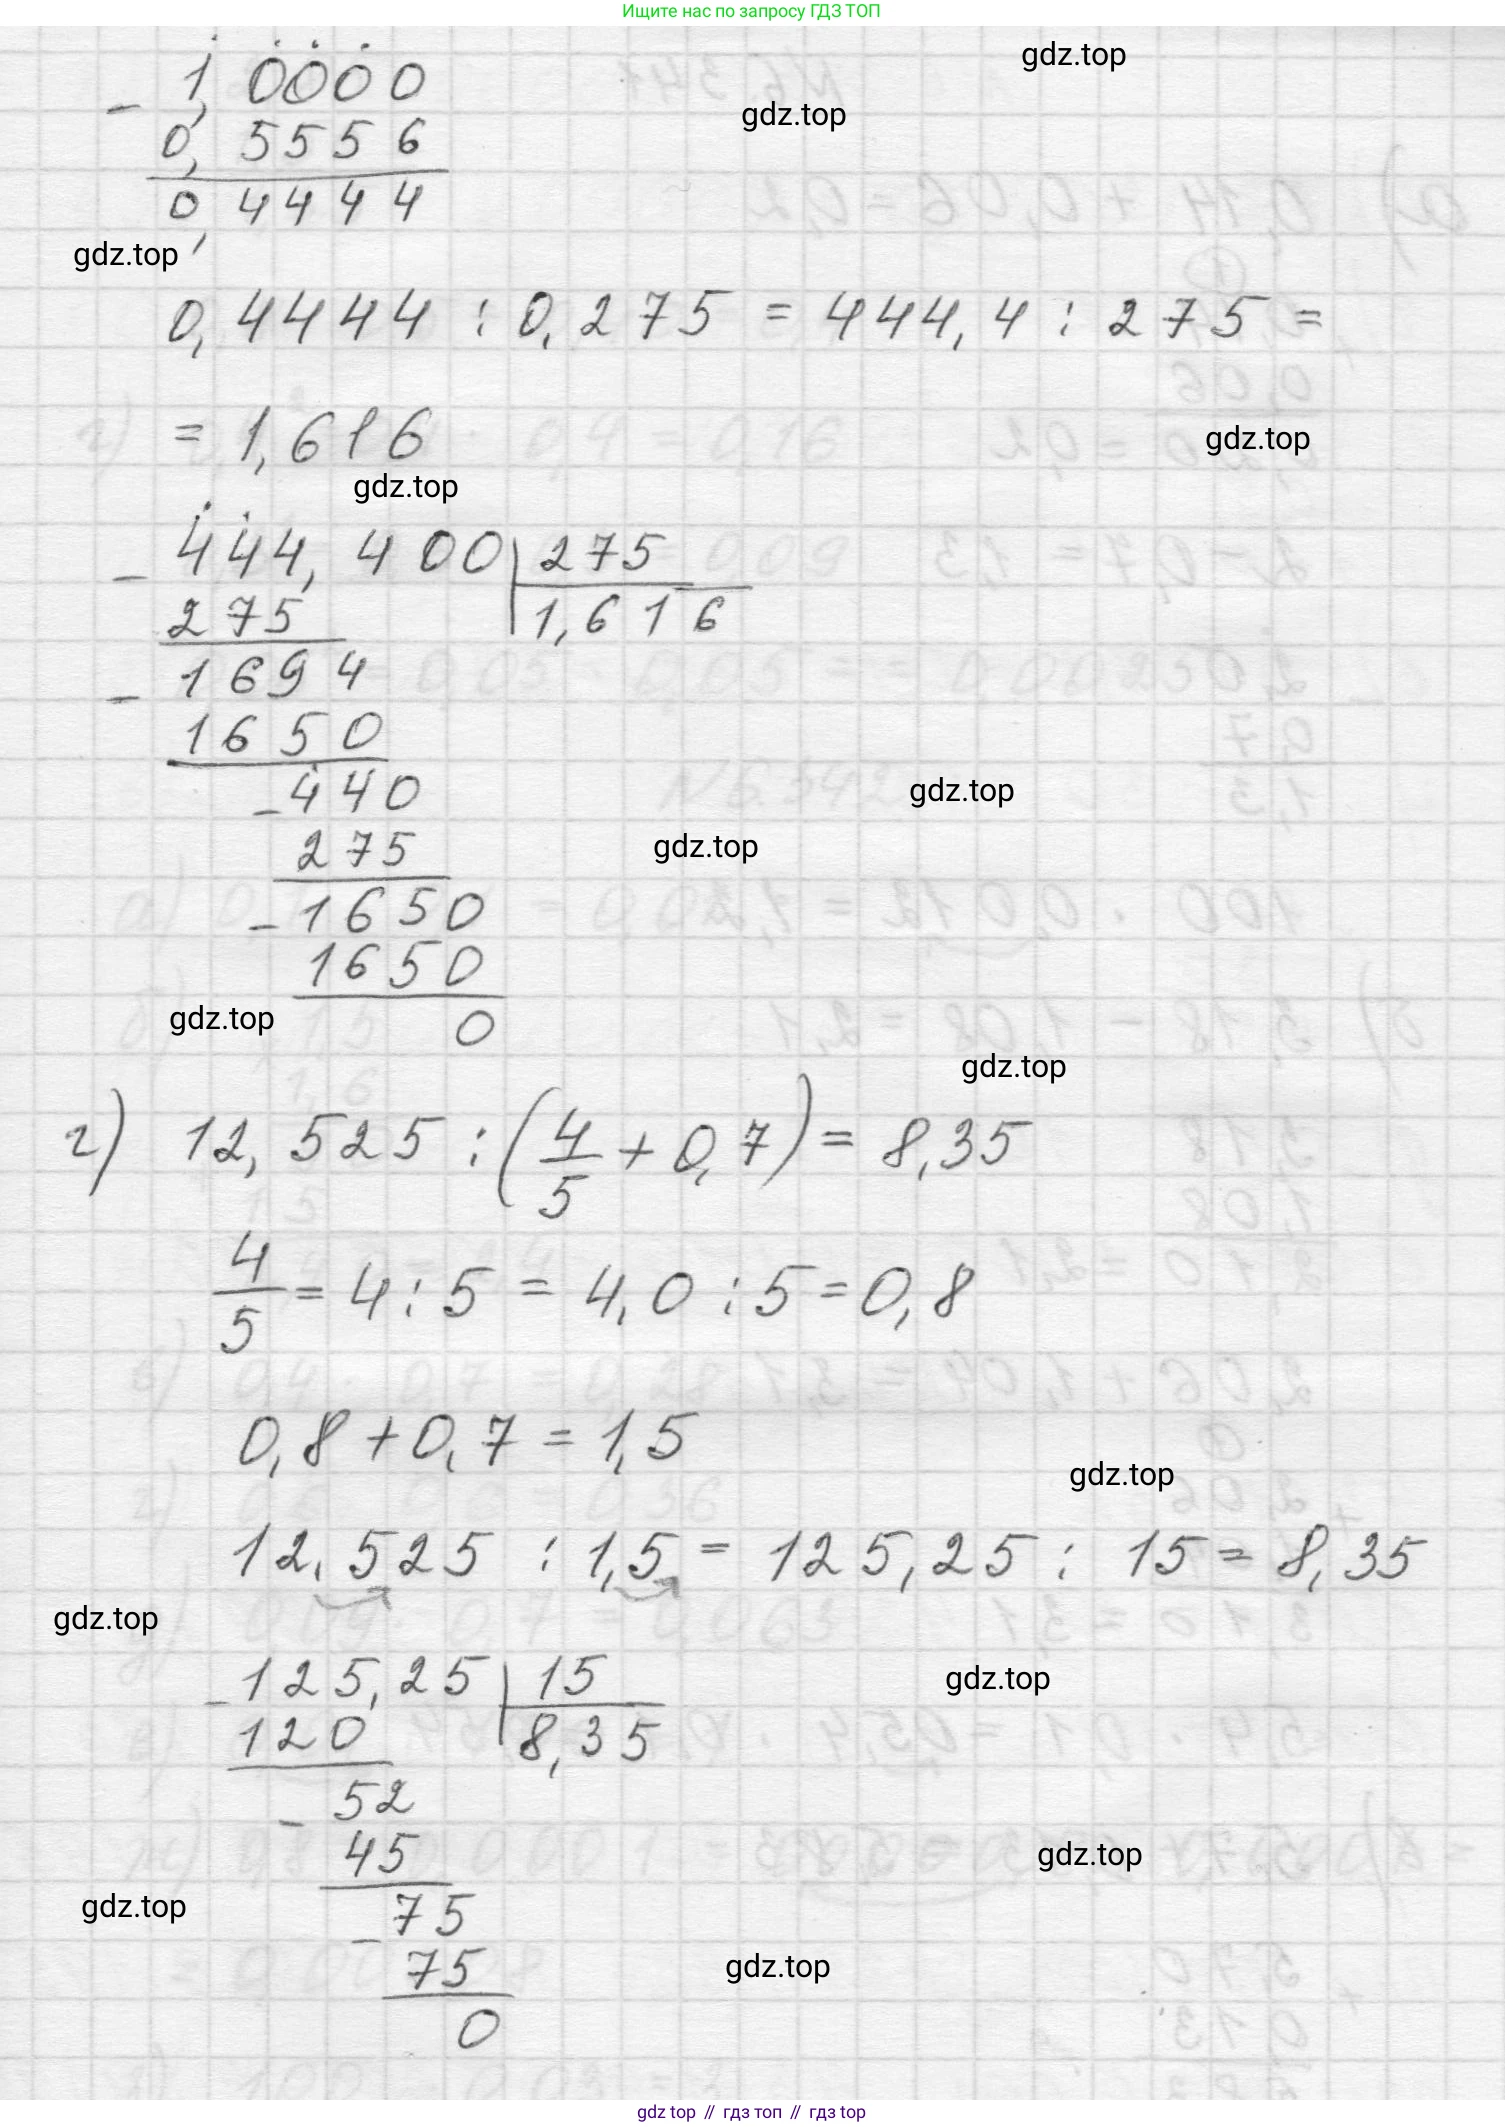 Ищите нас по запросу ГДЗ ТОП
gdz.top
gdz.top
1,0000
- 0,5556
0,4444
gdz.top
0,4444 : 0,275 = 444,4 : 275 =
= 1,616
gdz.top
gdz.top
- 444,400 | 275
275 | 1,616
- 1694
1650
- 440
gdz.top
275
gdz.top
- 1650
1650
0
gdz.top
gdz.top
г) 12,525 : (4/5 + 0,7) = 8,35
4/5 = 4 : 5 = 4,0 : 5 = 0,8
0,8 + 0,7 = 1,5
gdz.top
12,525 : 1,5 = 125,25 : 15 = 8,35
gdz.top
- 125,25 | 15
gdz.top
120 | 8,35
- 52
45
gdz.top
- 75
gdz.top
75
gdz.top
0
gdz top // гдз топ // гдз top